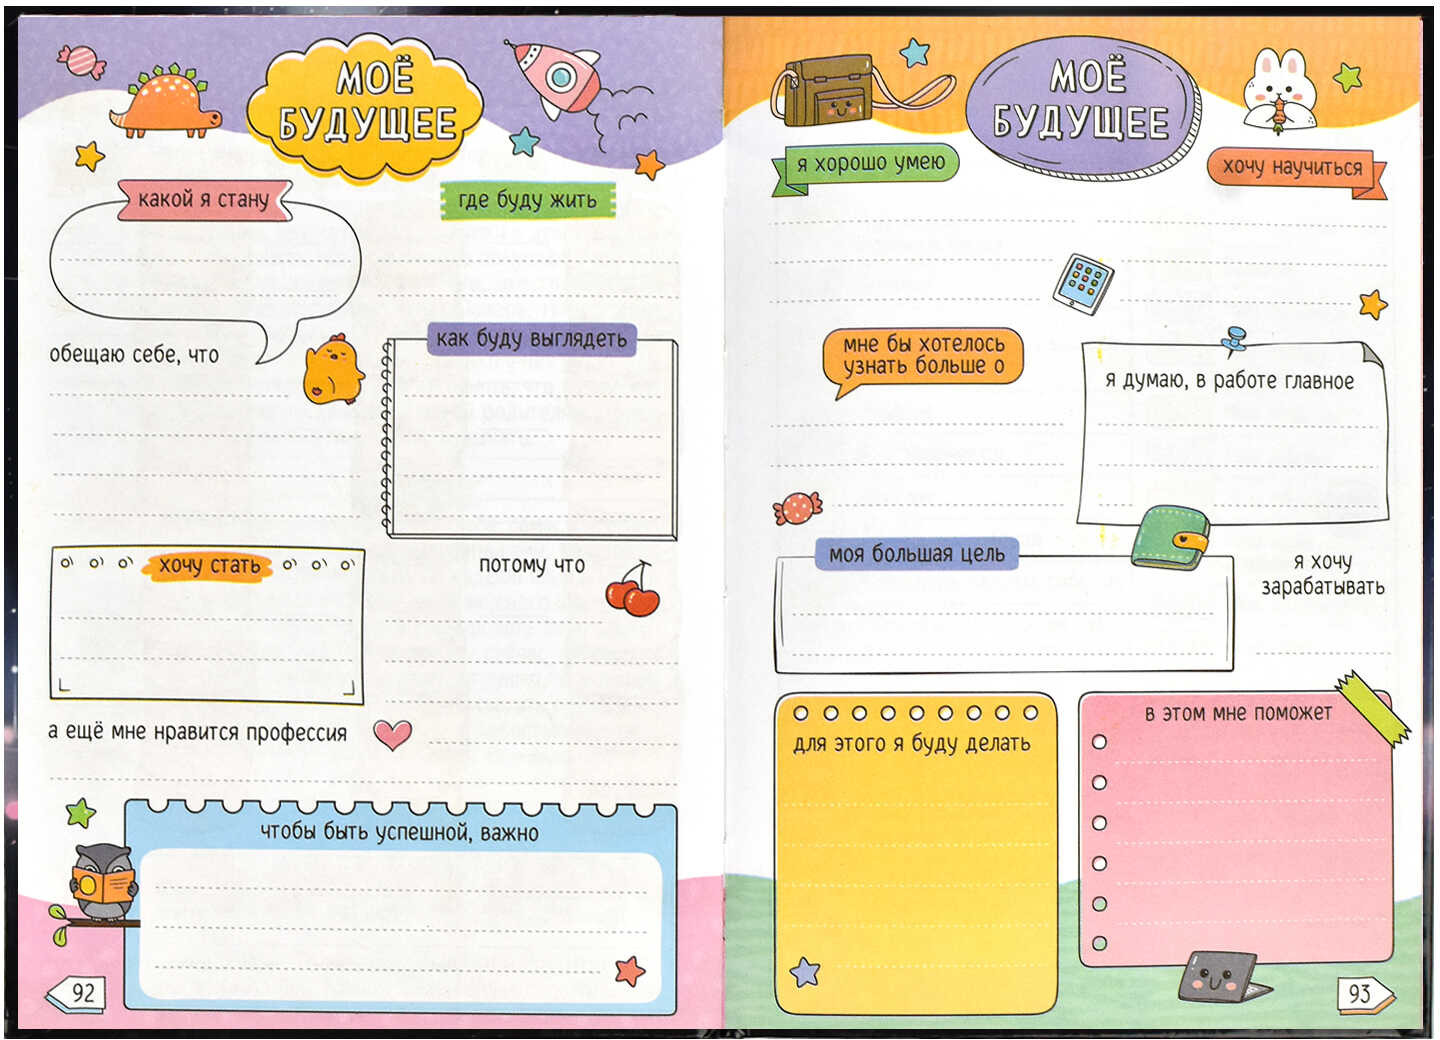 МОЁ
БУДУЩЕЕ
какой я стану
где буду жить
обещаю себе, что
как буду выглядеть
хочу стать
потому что
а ещё мне нравится профессия
чтобы быть успешной, важно
92
МОЁ
БУДУЩЕЕ
я хорошо умею
хочу научиться
мне бы хотелось
узнать больше о
я думаю, в работе главное
моя большая цель
я хочу
зарабатывать
для этого я буду делать
в этом мне поможет
93